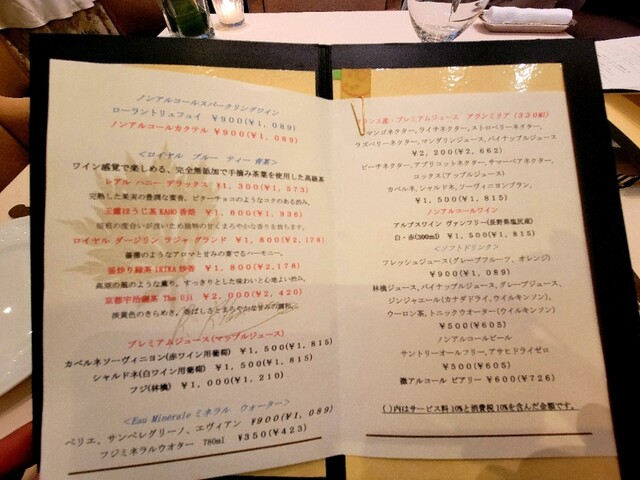 ノンアルコールスパークリングワイン
ローラントリュフュイ ￥900(￥1,089)
ノンアルコールカクテル ￥900(￥1,089)
<ロイヤル ブルー ティー 青茶>
ワイン感覚で楽しめる、完全無添加で手摘み茶葉を使用した高級茶
レアル ハニー デラックス ￥1,300(￥1,573)
完熟した果実の豊潤な蜜香。ビターチョコのようなコクのある渋み。
玉露ほうじ茶 KAHO 香焙 ￥1,600(￥1,936)
短期の度合いが浅いため独特の甘くまろやかな香りを放ちます。
ロイヤル ダージリン ラジャ グランド ￥1,800(￥2,178)
薔薇のようなアロマと甘みの奏でるハーモニー。
釜炒り緑茶 IRIKA 炒香 ￥1,800(￥2,178)
高原の風のような薫り。すっきりとした味わいと心地よい渋み。
京都宇治碾茶 The Uji ￥2,000(￥2,420)
淡黄色のきらめき。香ばしさとまろやかな甘みの調和。
プレミアムジュース(マップルジュース)
カベルネソーヴィニヨン(赤ワイン用葡萄) ￥1,500(￥1,815)
シャルドネ(白ワイン用葡萄) ￥1,500(￥1,815)
フジ(林檎) ￥1,000(￥1,210)
<Eau Minérale ミネラル ウォーター>
ペリエ、サンペレグリーノ、エヴィアン ￥900(￥1,089)
フジミネラルウオター 780ml ￥350(￥423)
ランス産・プレミアムジュース アランミリア(330ml)
マンゴネクター,ライチネクター,ストロベリーネクター,
ラズベリーネクター,マンダリンジュース,パイナップルジュース
￥2,200(￥2,662)
ピーチネクター,アプリコットネクター,サマーペアネクター,
コックス(アップルジュース)
カベルネ,シャルドネ,ソーヴィニヨンブラン,
￥1,500(￥1,815)
ノンアルコールワイン
アルプスワイン ヴァンフリー(長野県塩尻産)
白・赤(300ml) ￥1,500(￥1,815)
<ソフトドリンク>
フレッシュジュース(グレープフルーツ、オレンジ)
￥900(￥1,089)
林檎ジュース,パイナップルジュース,グレープジュース,
ジンジャエール(カナダドライ,ウイルキンソン),
ウーロン茶,トニックウオーター(ウイルキンソン)
￥500(￥605)
ノンアルコールビール
サントリーオールフリー,アサヒドライゼロ
￥500(￥605)
微アルコール ビアリー ￥600(￥726)
( )内はサービス料10%と消費税10%を含んだ金額です。